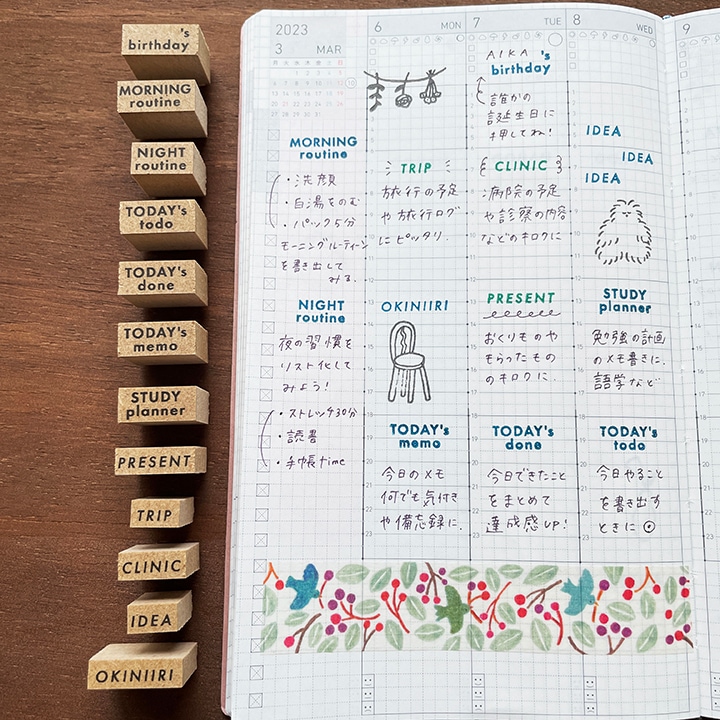 's
birthday
MORNING
routine
NIGHT
routine
TODAY's
todo
TODAY's
done
TODAY's
memo
STUDY
planner
PRESENT
TRIP
CLINIC
IDEA
OKINIIRI
2023
3 MAR
月 火 水 木 金 土 日
1 2 3 4 5
6 7 8 9 10 11 12
13 14 15 16 17 18 19
20 21 22 23 24 25 26
27 28 29 30 31
10
MORNING
routine
・洗顔
・白湯をのむ
・パック5分
モーニングルーティーン
を書き出して
みる。
NIGHT
routine
夜の習慣を
リスト化して
みよう!
・ストレッチ30分
・読書
・手帳time
6 MON
TRIP
旅行の予定
や旅行ログ
にピッタリ.
OKINIIRI
TODAY's
memo
今日のメモ
何でも気付き
や備忘録に.
7 TUE
AIKA 's
birthday
誰かの
誕生日に
押してね!
CLINIC
病院の予定
や診察の内容
などのキロクに
PRESENT
おくりものや
もらったもの
のキロクに.
TODAY's
done
今日できたこと
をまとめて
達成感UP!
8 WED
IDEA
IDEA
IDEA
STUDY
planner
勉強の計画
のメモ書きに.
語学など
TODAY's
todo
今日やること
を書き出す
ときに◎
9